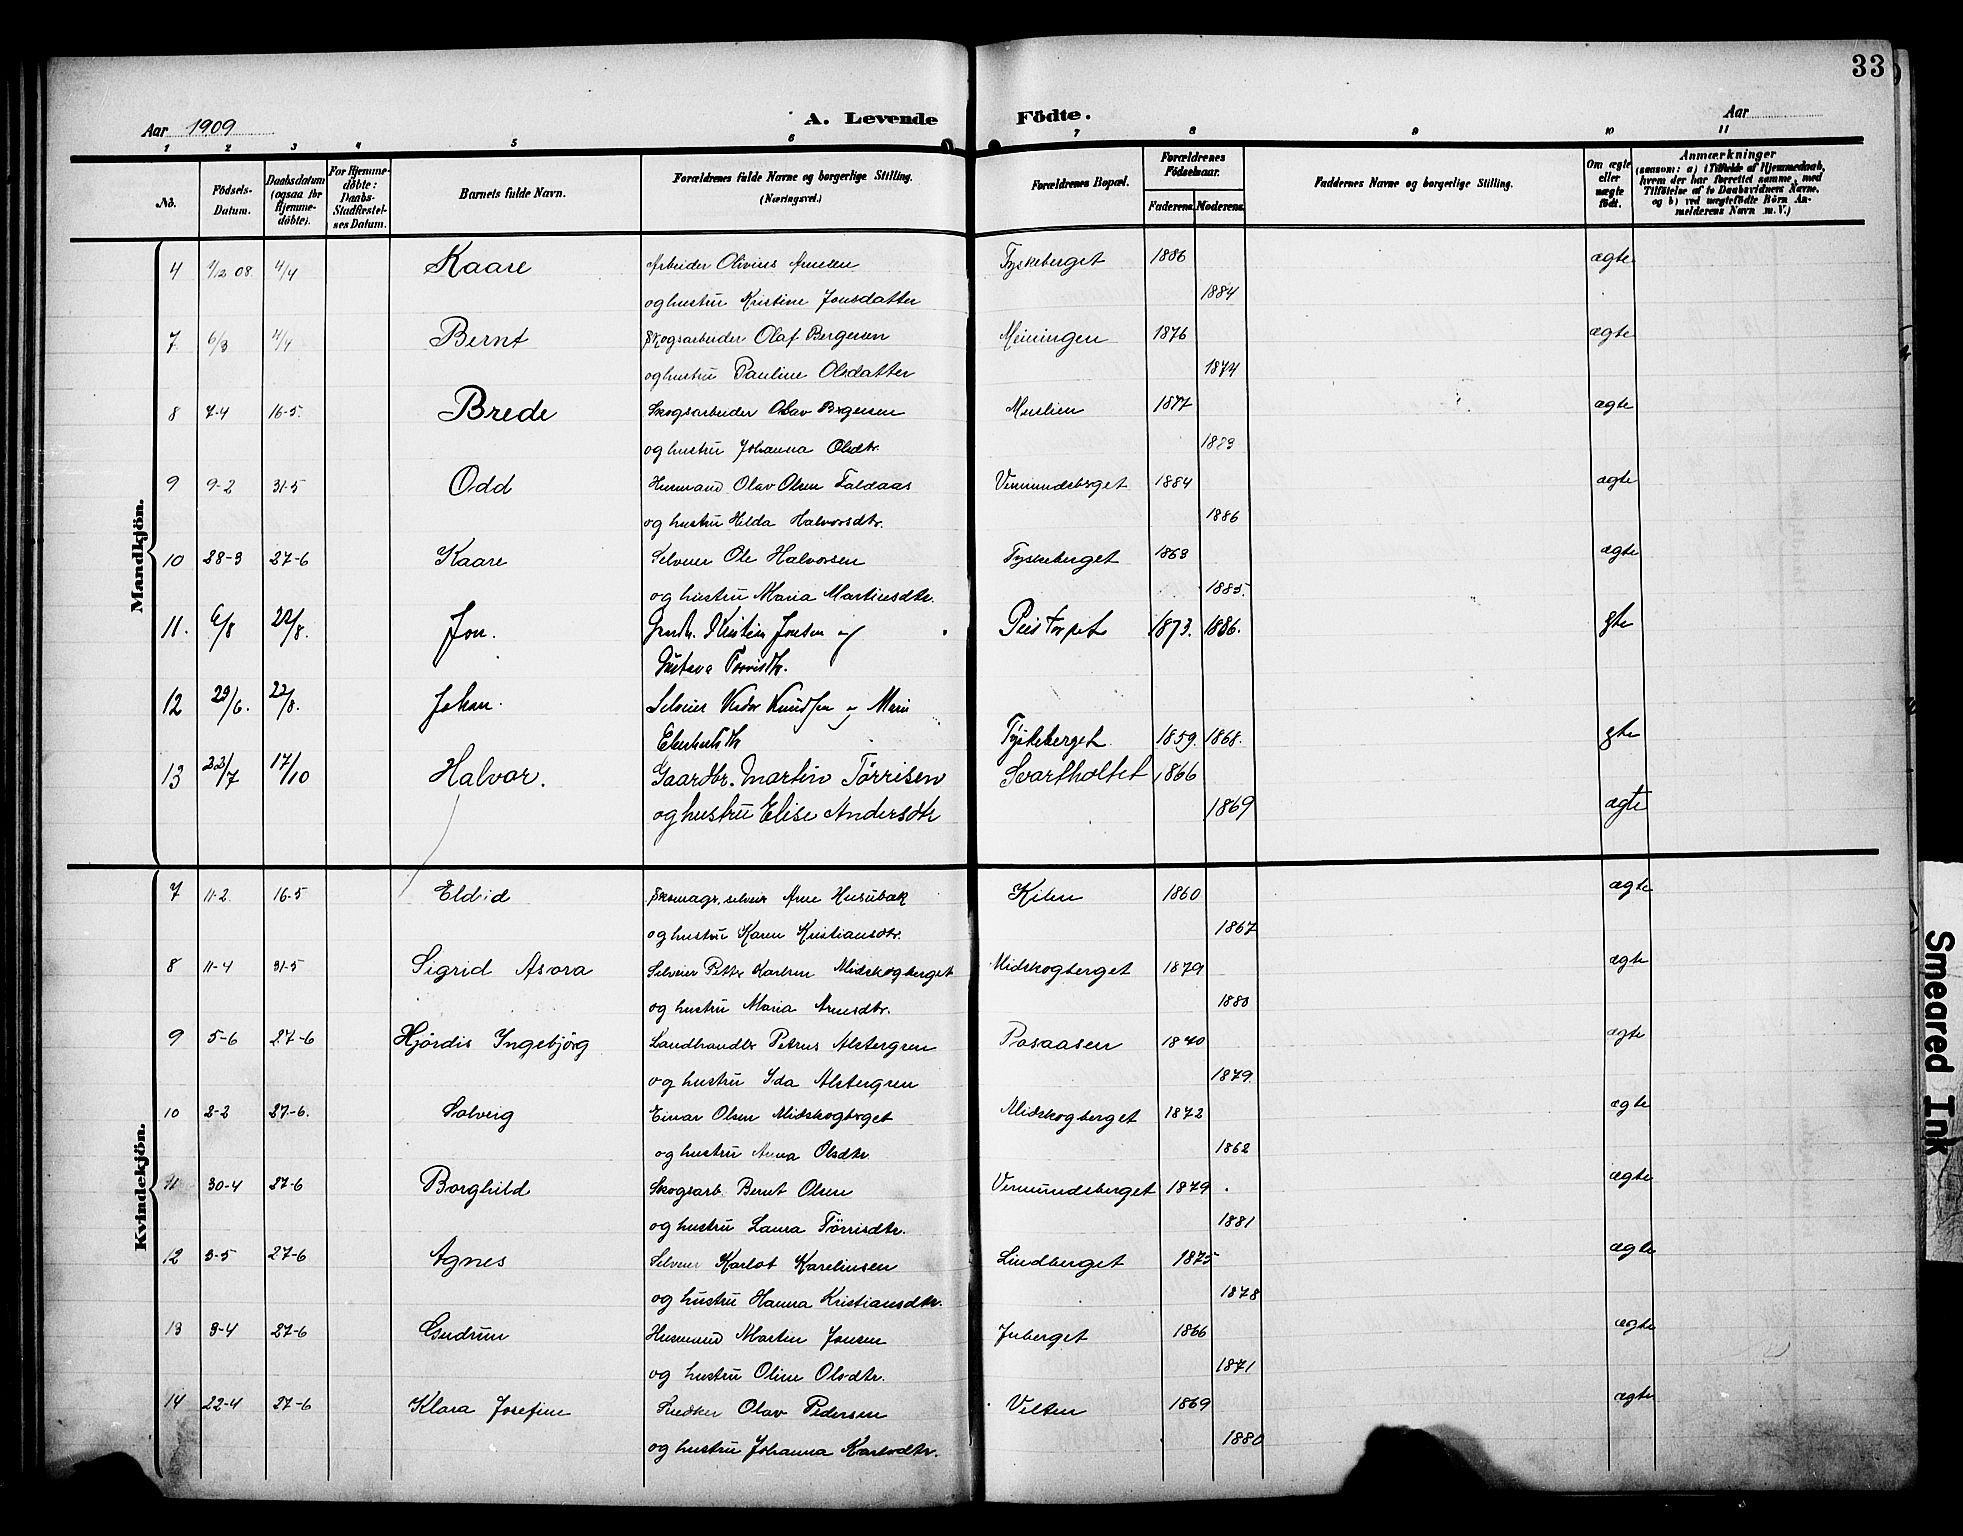 33
Aar 1909
A. Levende Födte.
Aar
1 2 3 4 5 6 7 8 9 10 11
No.
Födsels-Datum.
Daabsdatum (ogsaa for Hjemmedöbte).
For Hjemmedöbte: Daabs-Stadfæstelses Datum.
Barnets fulde Navn.
Forældrenes fulde Navne og borgerlige Stilling. (Næringsvei.)
Forældrenes Bopæl.
Forældrenes Födselsaar.
Faderens Moderens
Faddernes Navne og borgerlige Stilling.
Om ægte eller uægte födt.
Anmærkninger
(saasom: a) i Tilfælde af Hjemmedaab, hvem der har forrettet samme, med Tilföielse af to Daabsvidners Navne, og b) ved uægtefödte Börn Anmelderens Navn m. V.)
Mandkjön.
4 1/12 08 4/4 Kaare Arbeider Olivius Arnesen Tyskeberget 1886 ægte
og hustru Kristine Jonsdatter 1884
7 6/3 4/4 Bernt Skogsarbeider Olaf Bergersen Meiningen 1876 ægte
og hustru Pauline Olsdatter 1874
8 7-4 16-5. Brede Skogsarbeider Olav Brgersen 1877 ægte
og hustru Johanna Olsdtr. 1883
9 9-2 31-5 Odd Husmand Olav Olsen Faldaas Vermundsberget 1884 ægte
og hustru Hilda Halvorsdtr. 1886
10 28-3 27-6 Kaare Selveier Ole Halvorsen Tyskeberget 1863 ægte
og hustru Maria Martinsdtr. 1885.
11. 6/8 22/8. Jon. Kristian Jonsen og Peistorpet 1873. 1886. gte
Gustava Törrisdtr.
12 29/6. 22/8. Johan. Selveier Knudsen og Mari
Tyskeberget 1859. 1868. gte
13 23/7 17/10 Halvor. Gaardbr. Martin Törrisen Svartholtet 1866
og hustru Elise Andersdtr 1869 ægte
Kvindekjön.
7 11-2 16-5 Eldid Skomagr. selveier Arne Husubak Kilen 1860 ægte
og hustru Karen Kristiansdtr. 1867
8 11-4 31-5 Sigrid Asora Selveier Petter Karlsen Midskogberget Midskogberget 1879 ægte
og hustru Maria Arnesdtr. 1880
9 5-6 27-6 Hjördis Ingebjörg Landhandler Petrus Alstergren Posaasen 1870 ægte
og hustru Ida Alstergren 1879.
10 2-2 27-6. Solveig Einar Olsen Midskogberget Midskogberget 1872 ægte
og hustru Anna Olsdtr 1862
11 30-4 27-6 Borghild Skogsarb. Bernt Olsen Vermundsberget 1879 ægte
og hustru Laura Törrisdtr. 1881
12 3-5 27-6 Agnes Selveier Karlot Karelinsen Lindberget 1875 ægte
og hustru Hanna Kristiansdtr. 1878
13 3-4 27-6 Gudrun Husmand Martin Jonsen Juberget 1866 ægte
og hustru Oline Olsdtr. 1871
14 22-4 27-6 Klara Josefine Snedker Olav Pedersen Velten 1869 ægte
og hustru Johanna Karlsdtr. 1880
Smeared Ink